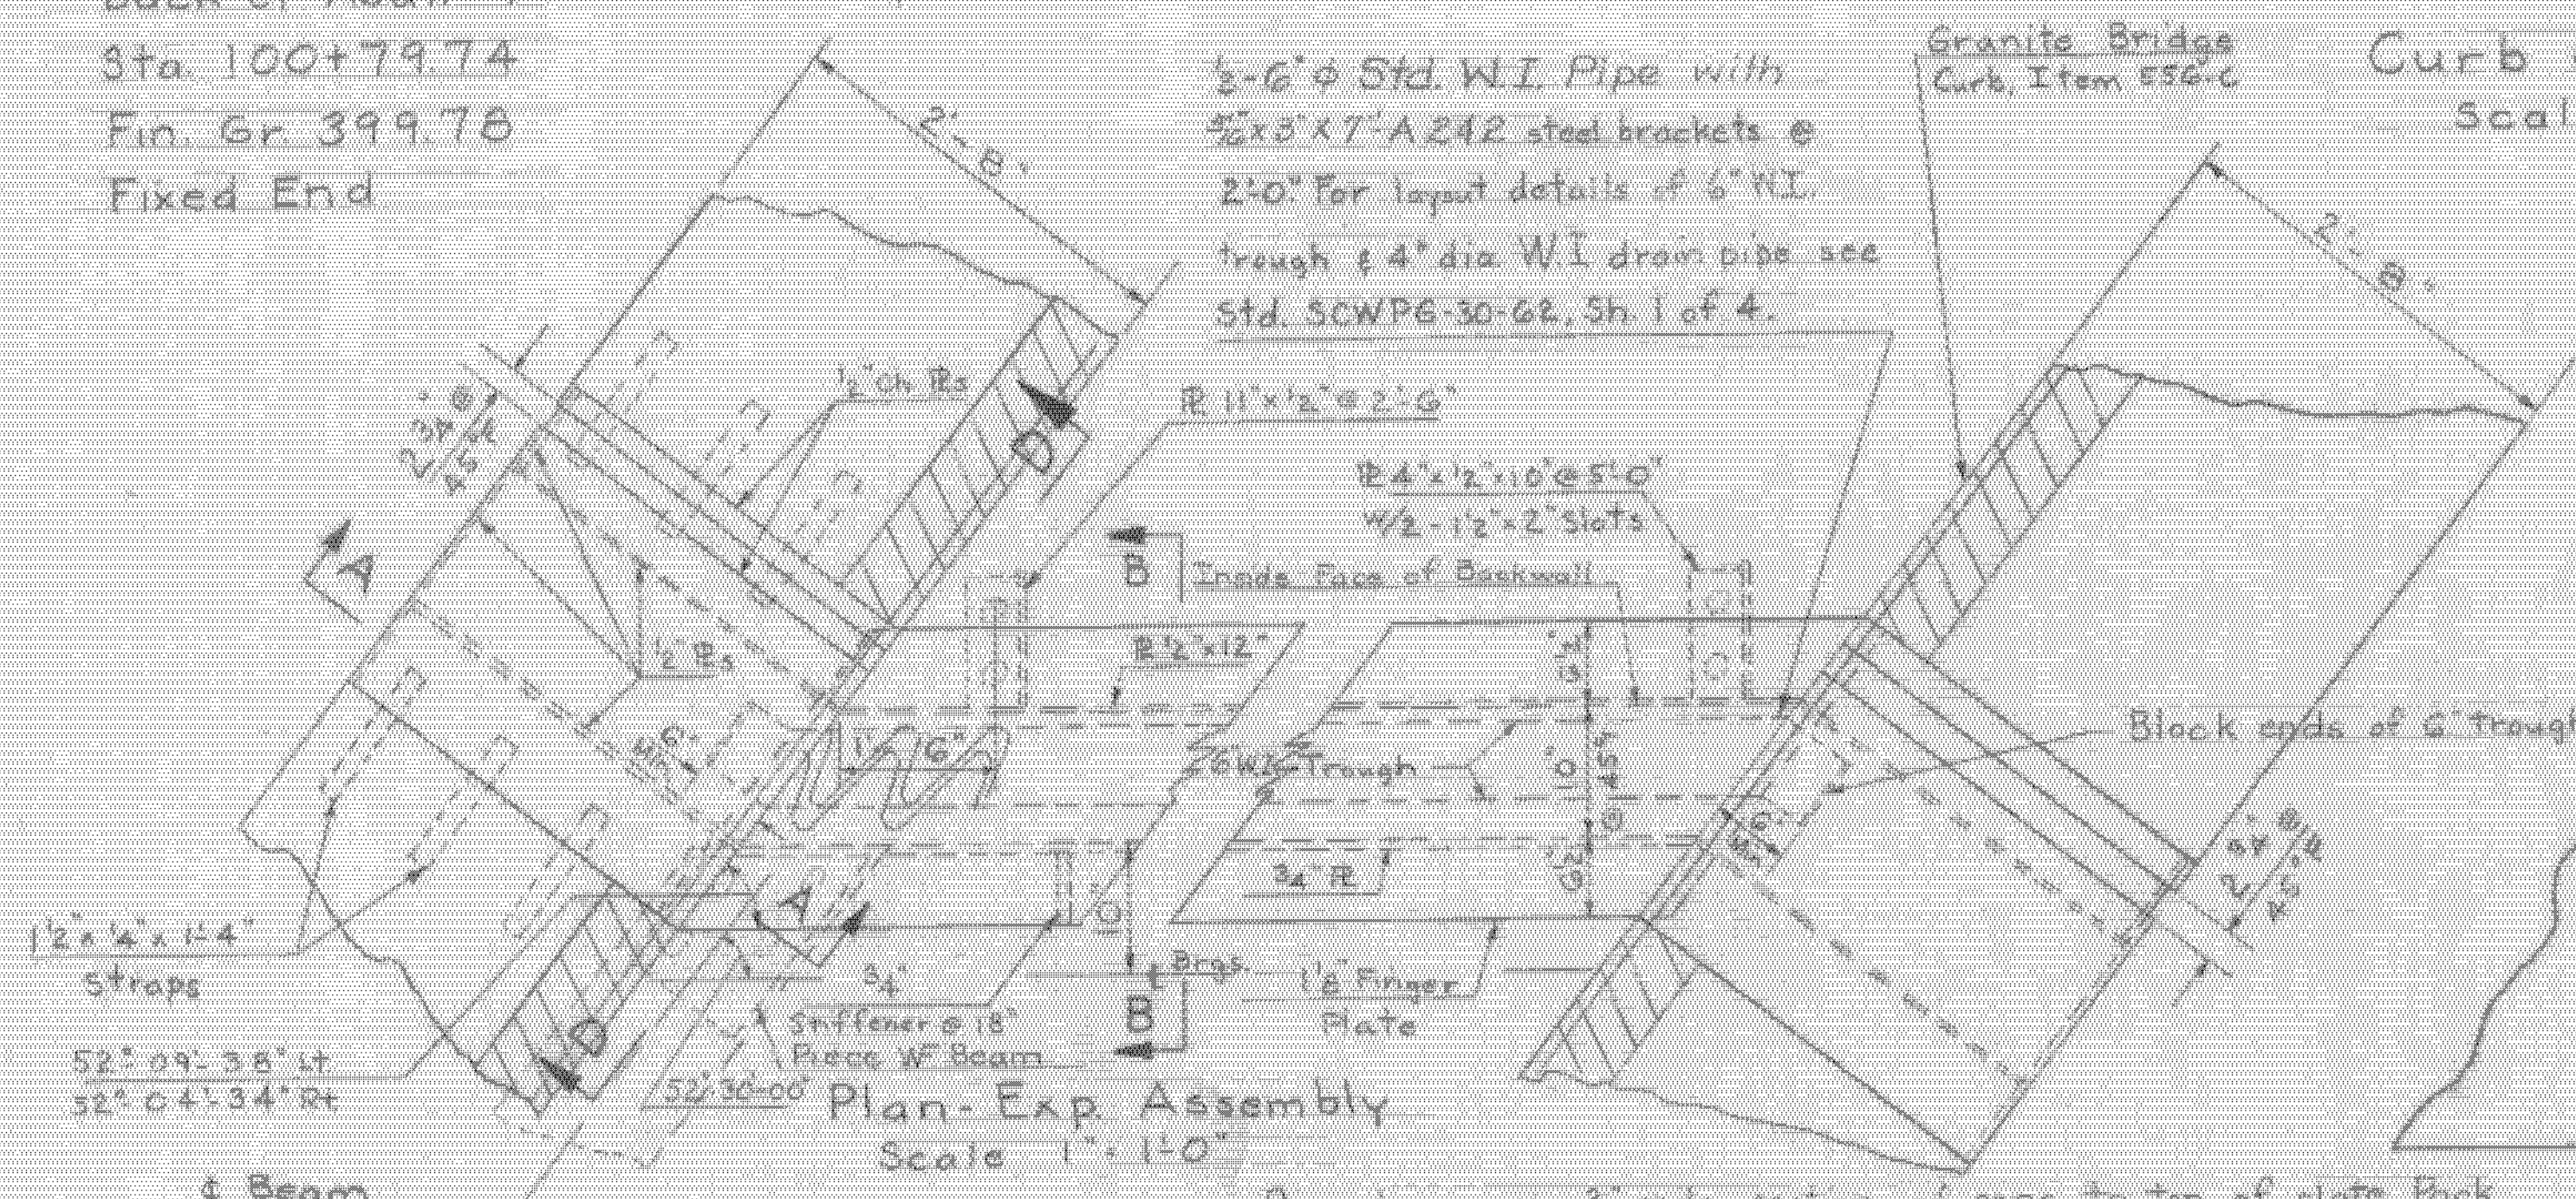 Back of Abut.
Sta. 100+79.74
Fin. Gr. 399.78
Fixed End
½-6"ø Std. W.I. Pipe with
5/16"x3"x7"-A242 steel brackets @
2'-0". For layout details of 6" W.I.
trough & 4" dia. W.I. drain pipe see
Std. SCWPG-30-62, Sh. 1 of 4.
Granite Bridge
Curb, Item E56-C
Curb
Scal
2'-8"
2'-8"
½" Ch. PLs
PL 11"x½"@2'-6"
PL 4"x½"x10"@5'-0"
W/2-1½"x2" Slots
2 3/4" @
45°
A
D
B
Inside Face of Backwall
½" PLs
PL ½"x12"
1'-6"
6" Min
6" W.I. Trough
Block ends of 6" trough
6" Min
3/4" PL
10"
2 3/4" @
45°
1½"x¼"x1'-4"
Straps
A
3/4"
℄ Brgs.
1⅛" Finger
Plate
Stiffener @ 18"
Piece WF Beam
B
D
52°-09'-38" Lt.
52°-04'-34" Rt.
52°-30'-00"
Plan-Exp. Assembly
Scale 1" = 1'-0"
℄ Beam
to top of plate Back